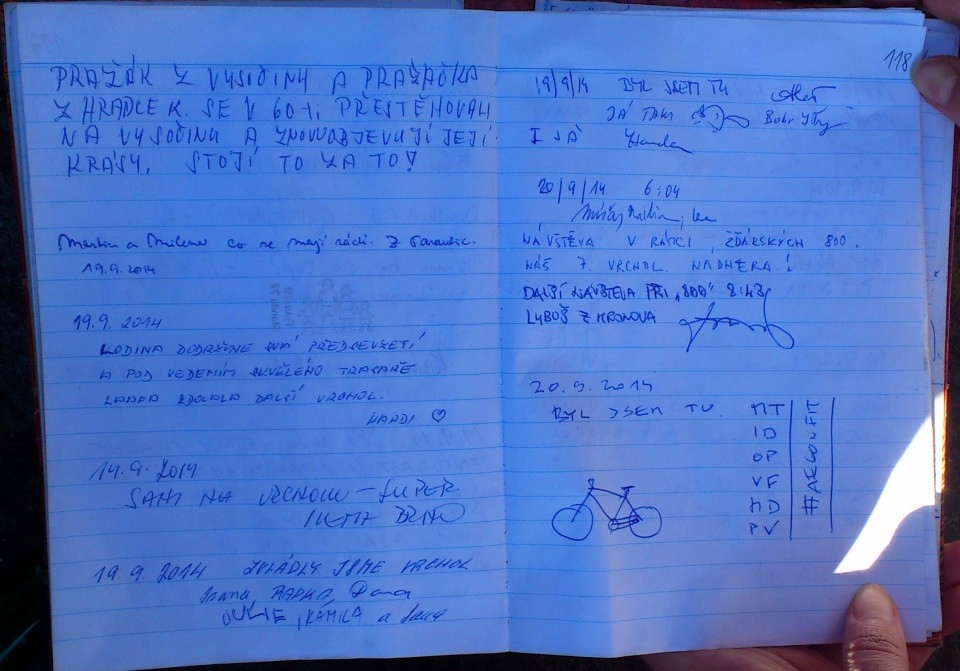 PRAŽÁK Z VYSOČINY A PRAŽAČKA
Z HRADCE K. SE V 60-ti PŘESTĚHOVALI
NA VYSOČINU A ZNOVUOBJEVUJÍ JEJÍ
KRÁSY. STOJÍ TO ZA TO!
Martin a Milena co se mají rádi. Z
19.9.2014
19.9.2014
RODINA DODRŽUJE SVÁ PŘEDSEVZETÍ
A POD VEDENÍM SKVĚLÉHO TRASAŘE
ZDOLALA DALŠÍ VRCHOL.
♡
14.9.2014
SAMI NA VRCHOLU – SUPER
BRNO
19.9.2014 ZVLÁDLY JSME VRCHOL
Ivana, RADKA, Dana
KAMILA a Jana
118
19/9/14 BYL JSEM TU
JÁ TAKY
I JÁ
20/9/14 6:04
NÁVŠTĚVA V RÁMCI ŽĎÁRSKÝCH 800.
NÁŠ 7. VRCHOL. NÁDHERA!
DALŠÍ NÁVŠTĚVA PŘI "800"
LUBOŠ Z HRONOVA
20.9.2014
BYL JSEM TU. MT
ID
OP
VF
MD
PV